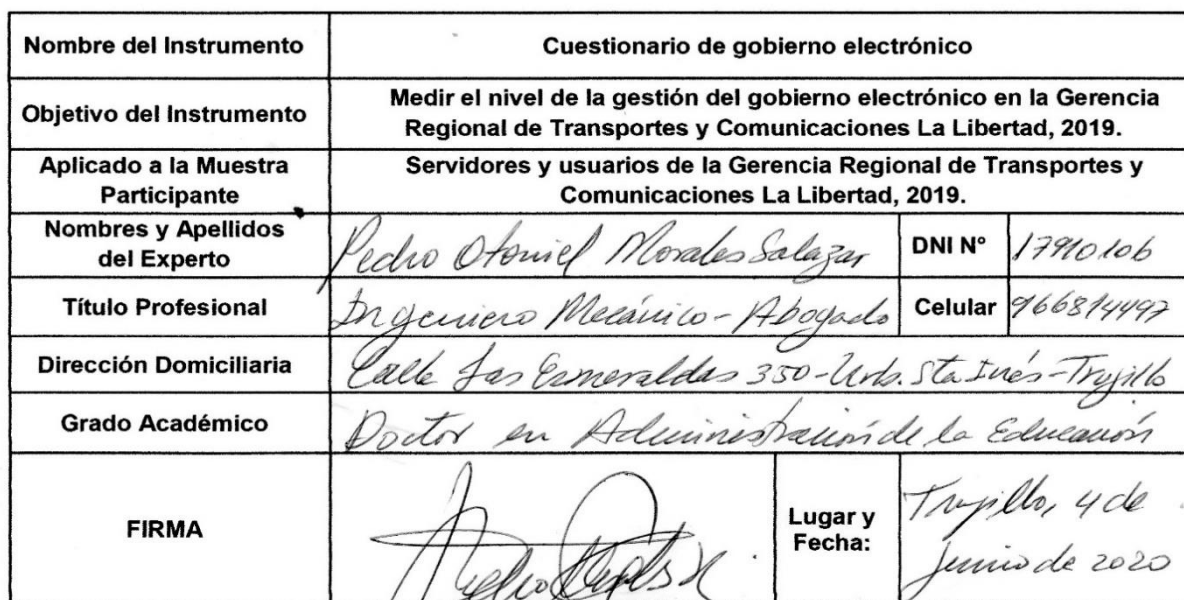 Nombre del Instrumento
Cuestionario de gobierno electrónico
Objetivo del Instrumento
Medir el nivel de la gestión del gobierno electrónico en la Gerencia
Regional de Transportes y Comunicaciones La Libertad, 2019.
Aplicado a la Muestra
Participante
Servidores y usuarios de la Gerencia Regional de Transportes y
Comunicaciones La Libertad, 2019.
Nombres y Apellidos
del Experto
Pedro Otoniel Morales Salazar
DNI N°
17910106
Título Profesional
Ingeniero Mecánico - Abogado
Celular
966814497
Dirección Domiciliaria
Calle Las Esmeraldas 350 - Urb. Sta Inés - Trujillo
Grado Académico
Doctor en Administración de la Educación
FIRMA
Lugar y
Fecha:
Trujillo, 4 de
junio de 2020